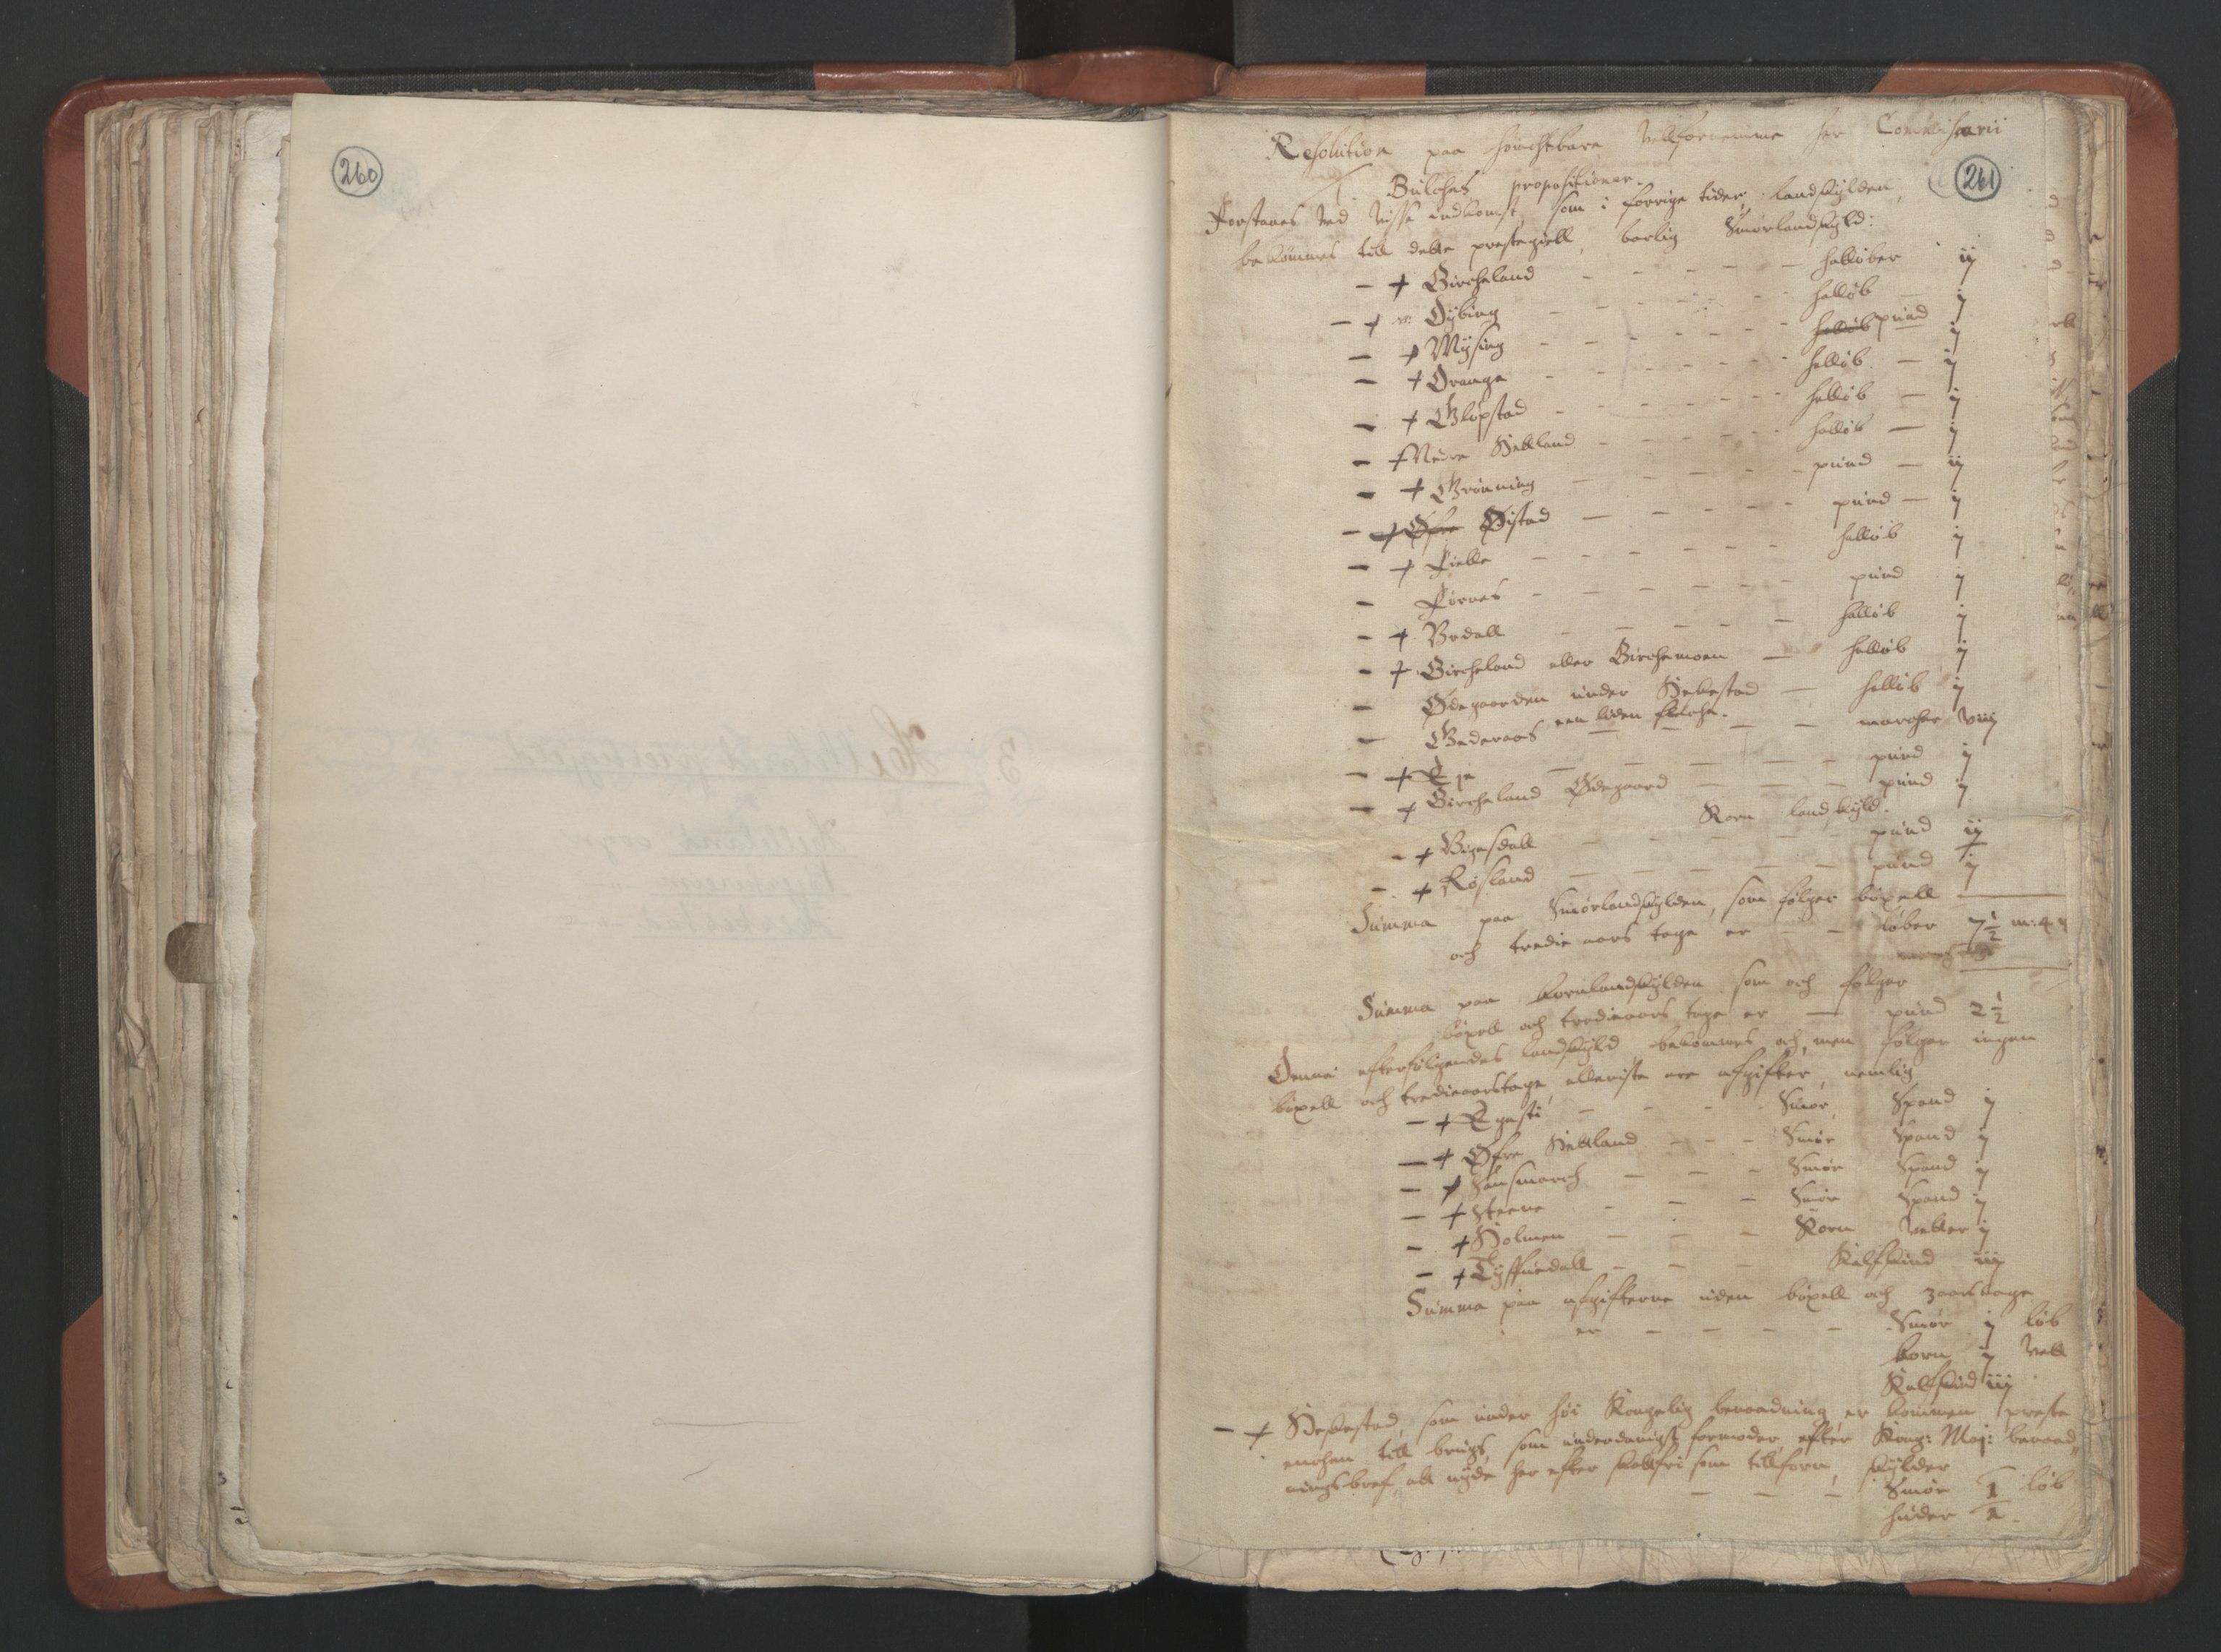 260
261
Resolution paa Commissarii
T. Bulches propositioner.
Forstaaes ved visse indkomst, som i forrige tider, landskylden,
bekommes till dette prestegield, vorlig Smørlandskyld:
– + Bircheland – – – – halløber ij
– + Øybing – – – – halløb j
– + Mysing – – – – halløb pund j
– + Orange – – – – halløb – j
– + Glopstad – – – – halløb – j
– + Nedre Hetland – – – – halløb – j
– + Grønning – – – – pund – ij
– + Øfre Øistad – – – – pund – j
– + Fielle – – – – halløb j
– Førnes – – – – pund j
– + Urdall – – – – halløb j
– + Bircheland eller Birchemoen – halløb j
– Ødegaarden under Hebestad – halløb j
– Gaderaas een liden – – marcher viij
– + Eje – – – – pund j
– + Bircheland Ødegaard – – – pund j
Korn landskyld.
– + Vigesdall – – – pund ij
– + Røsland – – – – pund j
Summa paa Smørlandskylden, som følger bøxell
och tredie aars tage er – – løber 7½
Summa paa kornlandskylden som och følger
bøxell och trediaars tage er – pund 2½
Denne efterfølgendes landskyld bekommes och, men følger ingen
bøxell och trediaarstage, alleniste ere afgifter, nemlig
– + – – – Smør, Spand j
– + Øfre Hetland – – – Smør Spand j
– + Hansmarch – – – Smør Spand j
– + Steene – – – Smør Spand j
– + Holmen – – – Korn vetter j
– + Tyffuedall – – – Kalfskind iij
Summa paa afgifterne uden bøxell och 3aarstage
er – – – – Smør j løb
korn j vett
Kalfskind iij
– + Heskestad, som under høi Kongelig benaadning er kommen preste
enchen till brugs, som underdanigst formoder efter Kong: Maj: benaad„
ningsbref, att nyde her efter skattfri som tillforn, skylder
– – – Smør 1 løb
huder 1.